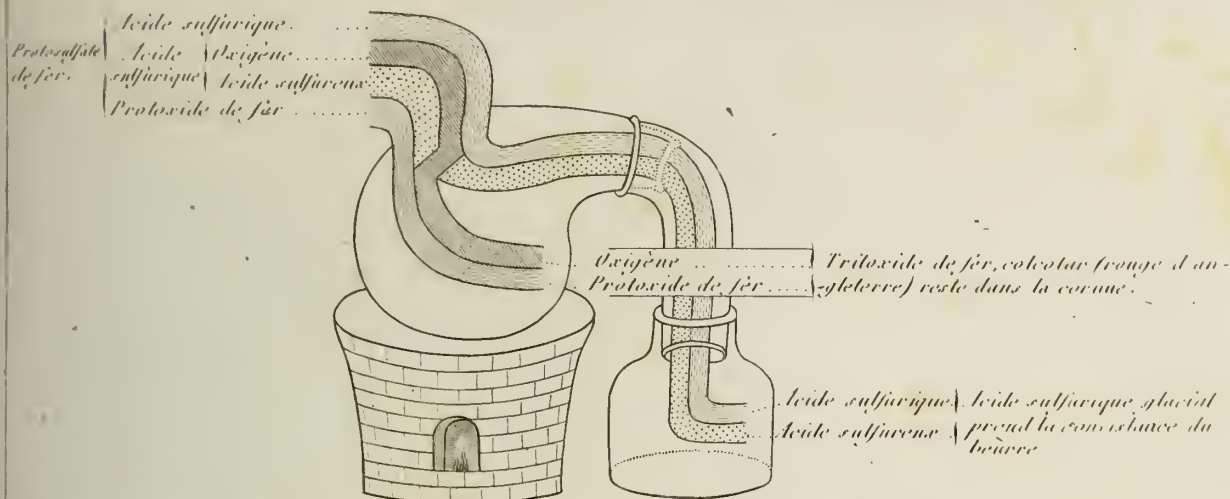 Acide sulfurique.
Protosulfate de fer.
Acide sulfurique
Oxigène
Acide sulfureux
Protoxide de fer
Oxigène
Protoxide de fer
Tritoxide de fer, colcotar (rouge d'an-
-gleterre) reste dans la cornue.
Acide sulfurique
Acide sulfureux
Acide sulfurique glacial
prend la consistance du
beùrre